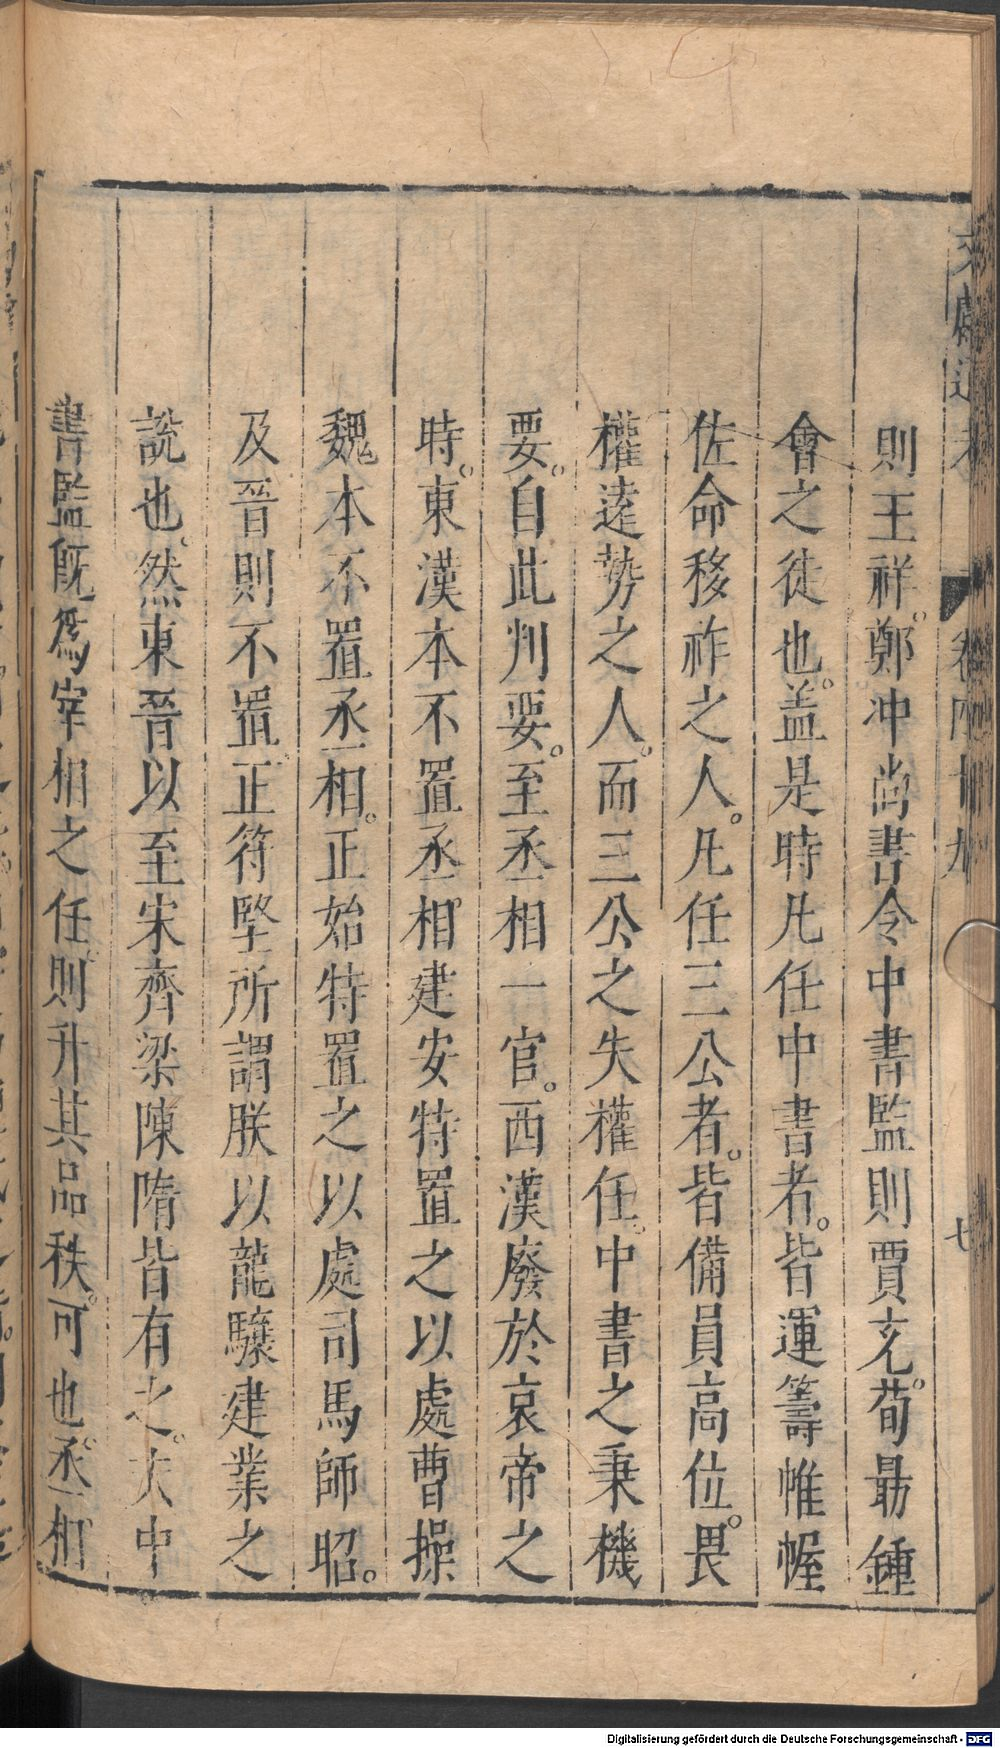 文獻通考 卷四十九 七
則王祥。鄭冲尚書令中書監則賈充。荀勗鍾
會之徒也。盖是時凡任中書者。皆運籌帷幄
佐命移祚之人。凡任三公者。皆備員高位。畏
權遠勢之人。而三公之失權任。中書之秉機
要。自此判要。至丞相一官。西漢廢於哀帝之
時。東漢本不置丞相。建安特置之以處曹操
魏本不置丞相。正始特置之以處司馬師昭。
及晉則不置。正符堅所謂朕以龍驤建業之
說也。然東晉以至宋齊梁陳隋皆有之。夫中
書監旣爲宰相之任。則升其品秩。可也。丞相
Digitalisierung gefördert durch die Deutsche Forschungsgemeinschaft - DFG